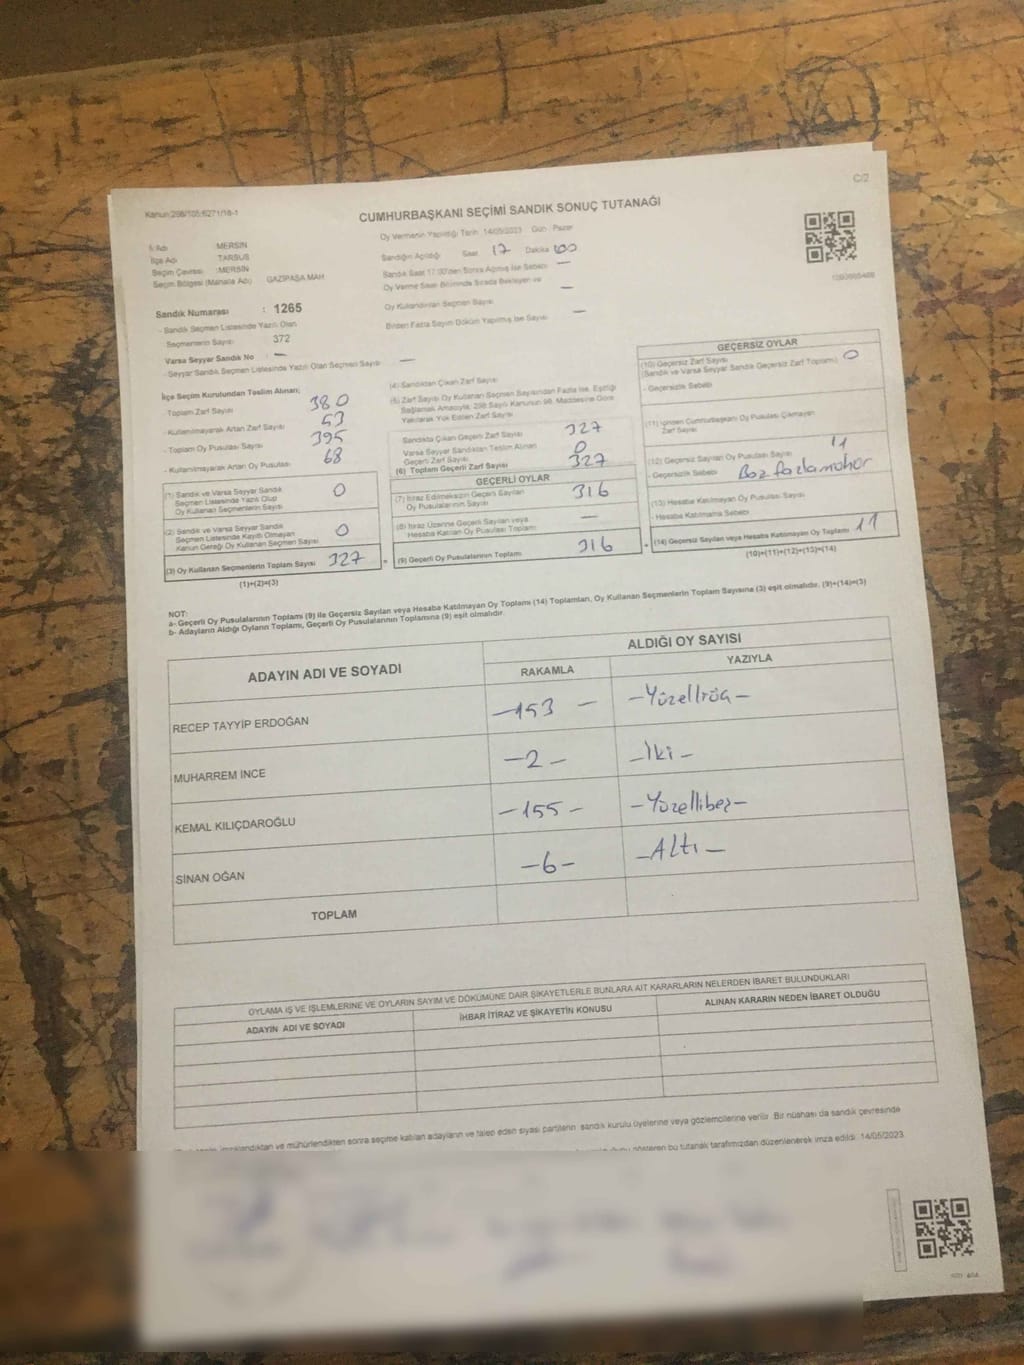 Kanun:298/105;6271/18-1
C/2
CUMHURBAŞKANI SEÇİMİ SANDIK SONUÇ TUTANAĞI
İl Adı MERSİN
İlçe Adı TARSUS
Seçim Çevresi :MERSİN
Seçim Bölgesi (Mahalle Adı) GAZİPAŞA MAH
Sandık Numarası : 1265
- Sandık Seçmen Listesinde Yazılı Olan
Seçmenlerin Sayısı 372
Varsa Seyyar Sandık No : —
- Seyyar Sandık Seçmen Listesinde Yazılı Olan Seçmen Sayısı —
Oy Vermenin Yapıldığı Tarih 14/05/2023 Gün : Pazar
Sandığın Açıldığı Saat 17 Dakika
Sandık Saat 17:00'den Sonra Açılmış İse Sebebi —
Oy Verme Saati Bitiminde Sırada Bekleyen ve
Oy Kullandırılan Seçmen Sayısı —
Birden Fazla Sayım Döküm Yapılmış İse Sayısı —
İlçe Seçim Kurulundan Teslim Alınan;
- Toplam Zarf Sayısı 380
- Kullanılmayarak Artan Zarf Sayısı 53
- Toplam Oy Pusulası Sayısı 395
- Kullanılmayarak Artan Oy Pusulası 68
(1) Sandık ve Varsa Seyyar Sandık
Seçmen Listesinde Yazılı Olup
Oy Kullanan Seçmenlerin Sayısı 0
(2) Sandık ve Varsa Seyyar Sandık
Seçmen Listesinde Kayıtlı Olmayan
Kanun Gereği Oy Kullanan Seçmen Sayısı 0
(3) Oy Kullanan Seçmenlerin Toplam Sayısı 327
(1)+(2)=(3)
(4) Sandıktan Çıkan Zarf Sayısı
(5) Zarf Sayısı Oy Kullanan Seçmen Sayısından Fazla İse, Eşitliği
Sağlamak Amacıyla, 298 Sayılı Kanunun 98. Maddesine Göre
Yakılarak Yok Edilen Zarf Sayısı
Sandıkta Çıkan Geçerli Zarf Sayısı 327
Varsa Seyyar Sandıktan Teslim Alınan
Geçerli Zarf Sayısı 0
(6) Toplam Geçerli Zarf Sayısı 327
GEÇERLİ OYLAR
(7) İtiraz Edilmeksizin Geçerli Sayılan
Oy Pusulalarının Sayısı 316
(8) İtiraz Üzerine Geçerli Sayılan veya
Hesaba Katılan Oy Pusulası Toplamı —
(9) Geçerli Oy Pusulalarının Toplamı 316
GEÇERSİZ OYLAR
(10) Geçersiz Zarf Sayısı
(Sandık ve Varsa Seyyar Sandık Geçersiz Zarf Toplamı) 0
- Geçersizlik Sebebi
(11) İçinden Cumhurbaşkanı Oy Pusulası Çıkmayan
Zarf Sayısı
(12) Geçersiz Sayılan Oy Pusulası Sayısı 11
- Geçersizlik Sebebi
(13) Hesaba Katılmayan Oy Pusulası Sayısı
- Hesaba Katılmama Sebebi
(14) Geçersiz Sayılan veya Hesaba Katılmayan Oy Toplamı 11
(10)+(11)+(12)+(13)=(14)
NOT:
a- Geçerli Oy Pusulalarının Toplamı (9) ile Geçersiz Sayılan veya Hesaba Katılmayan Oy Toplamı (14) Toplamları, Oy Kullanan Seçmenlerin Toplam Sayısına (3) eşit olmalıdır. (9)+(14)=(3)
b- Adayların Aldığı Oyların Toplamı, Geçerli Oy Pusulalarının Toplamına (9) eşit olmalıdır.
ADAYIN ADI VE SOYADI
ALDIĞI OY SAYISI
RAKAMLA YAZIYLA
RECEP TAYYİP ERDOĞAN -153- -Yüzellıüç-
MUHARREM İNCE -2- -İki-
KEMAL KILIÇDAROĞLU -155- -Yüzellibeş-
SİNAN OĞAN -6- -Altı-
TOPLAM
OYLAMA İŞ VE İŞLEMLERİNE VE OYLARIN SAYIM VE DÖKÜMÜNE DAİR ŞİKAYETLERLE BUNLARA AİT KARARLARIN NELERDEN İBARET BULUNDUKLARI
ADAYIN ADI VE SOYADI İHBAR İTİRAZ VE ŞİKAYETİN KONUSU ALINAN KARARIN NEDEN İBARET OLDUĞU
imzalandıktan ve mühürlendikten sonra seçime katılan adayların ve talep eden siyasi partilerin sandık kurulu üyelerine veya gözlemcilerine verilir. Bir nüshası da sandık çevresinde
gösteren bu tutanak tarafımızdan düzenlenerek imza edildi. 14/05/2023